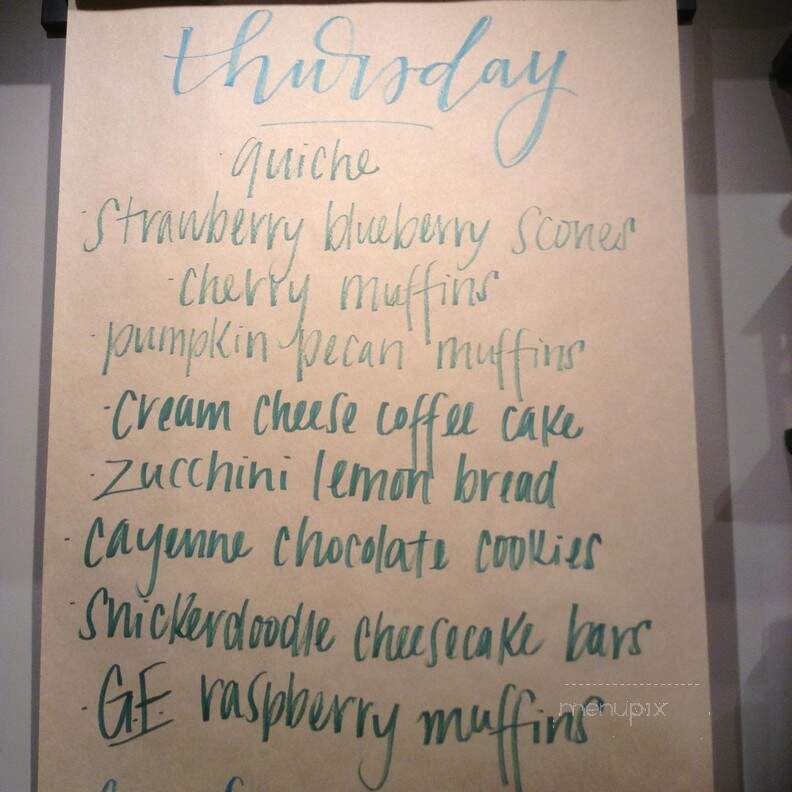 thursday
· quiche
· strawberry blueberry scones
· cherry muffins
· pumpkin pecan muffins
· cream cheese coffee cake
· zucchini lemon bread
· cayenne chocolate cookies
· snickerdoodle cheesecake bars
· G.F. raspberry muffins
menupix